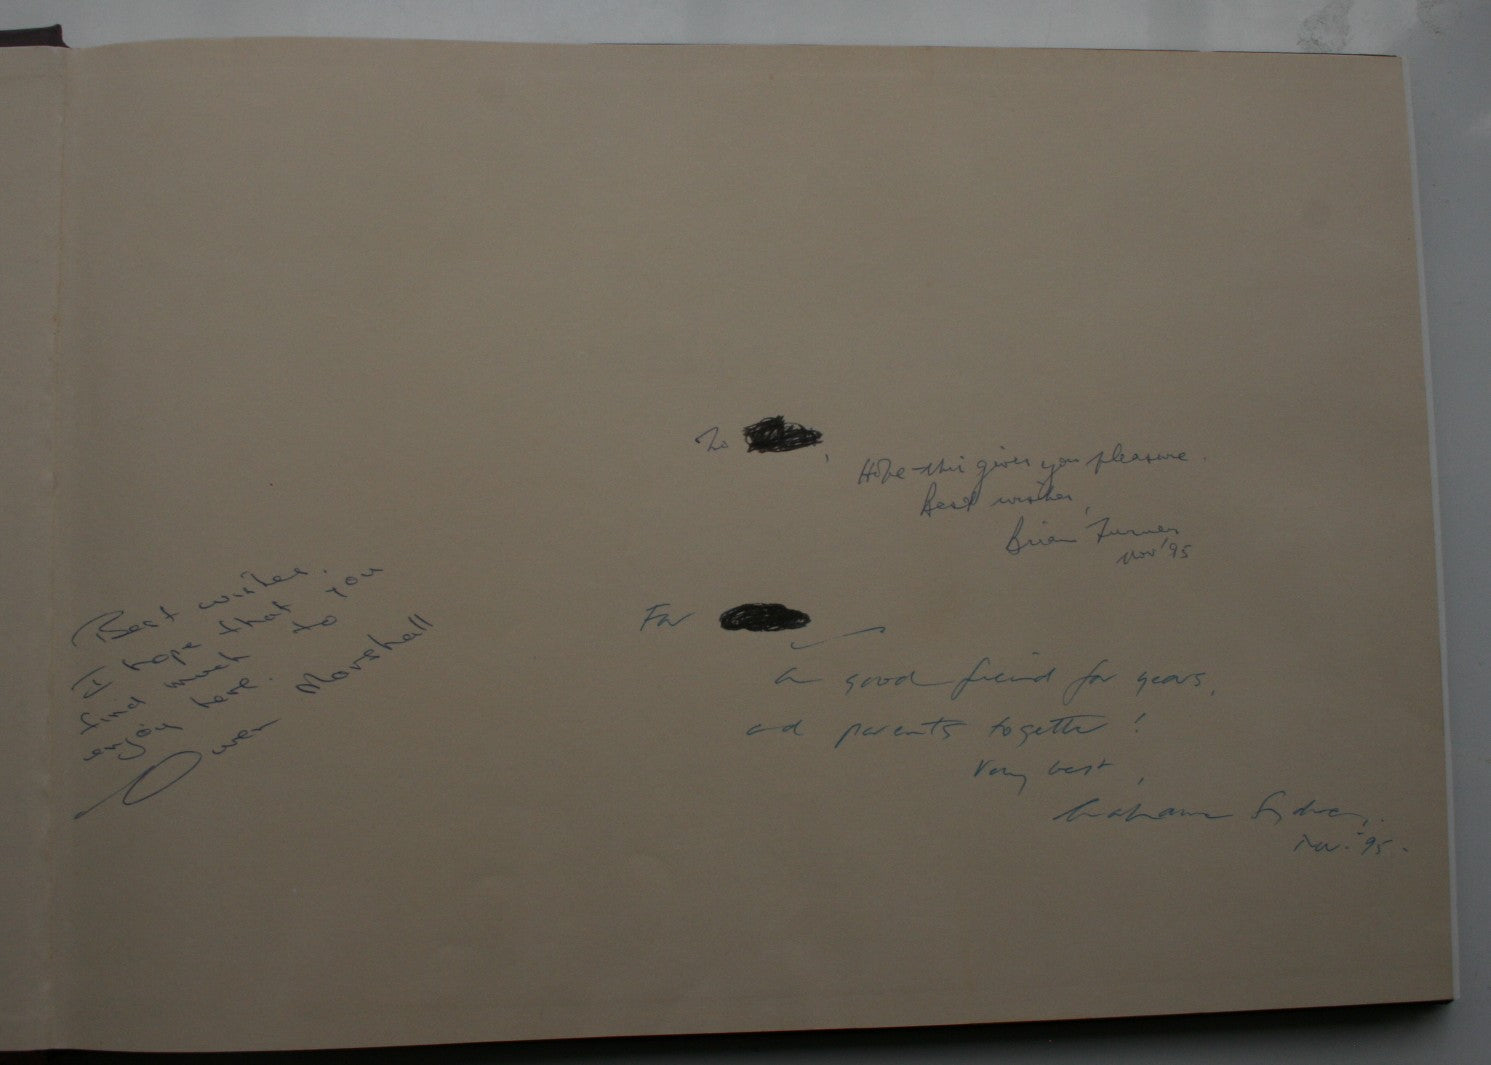 To ,
Hope this gives you pleasure.
Best wishes,
Brian Turner
Nov '95
Best wishes.
I hope that you
find much to
enjoy here.
Owen Marshall
For
a good friend for years,
and parents together!
Very best,
Grahame Sydney.
Nov. '95.